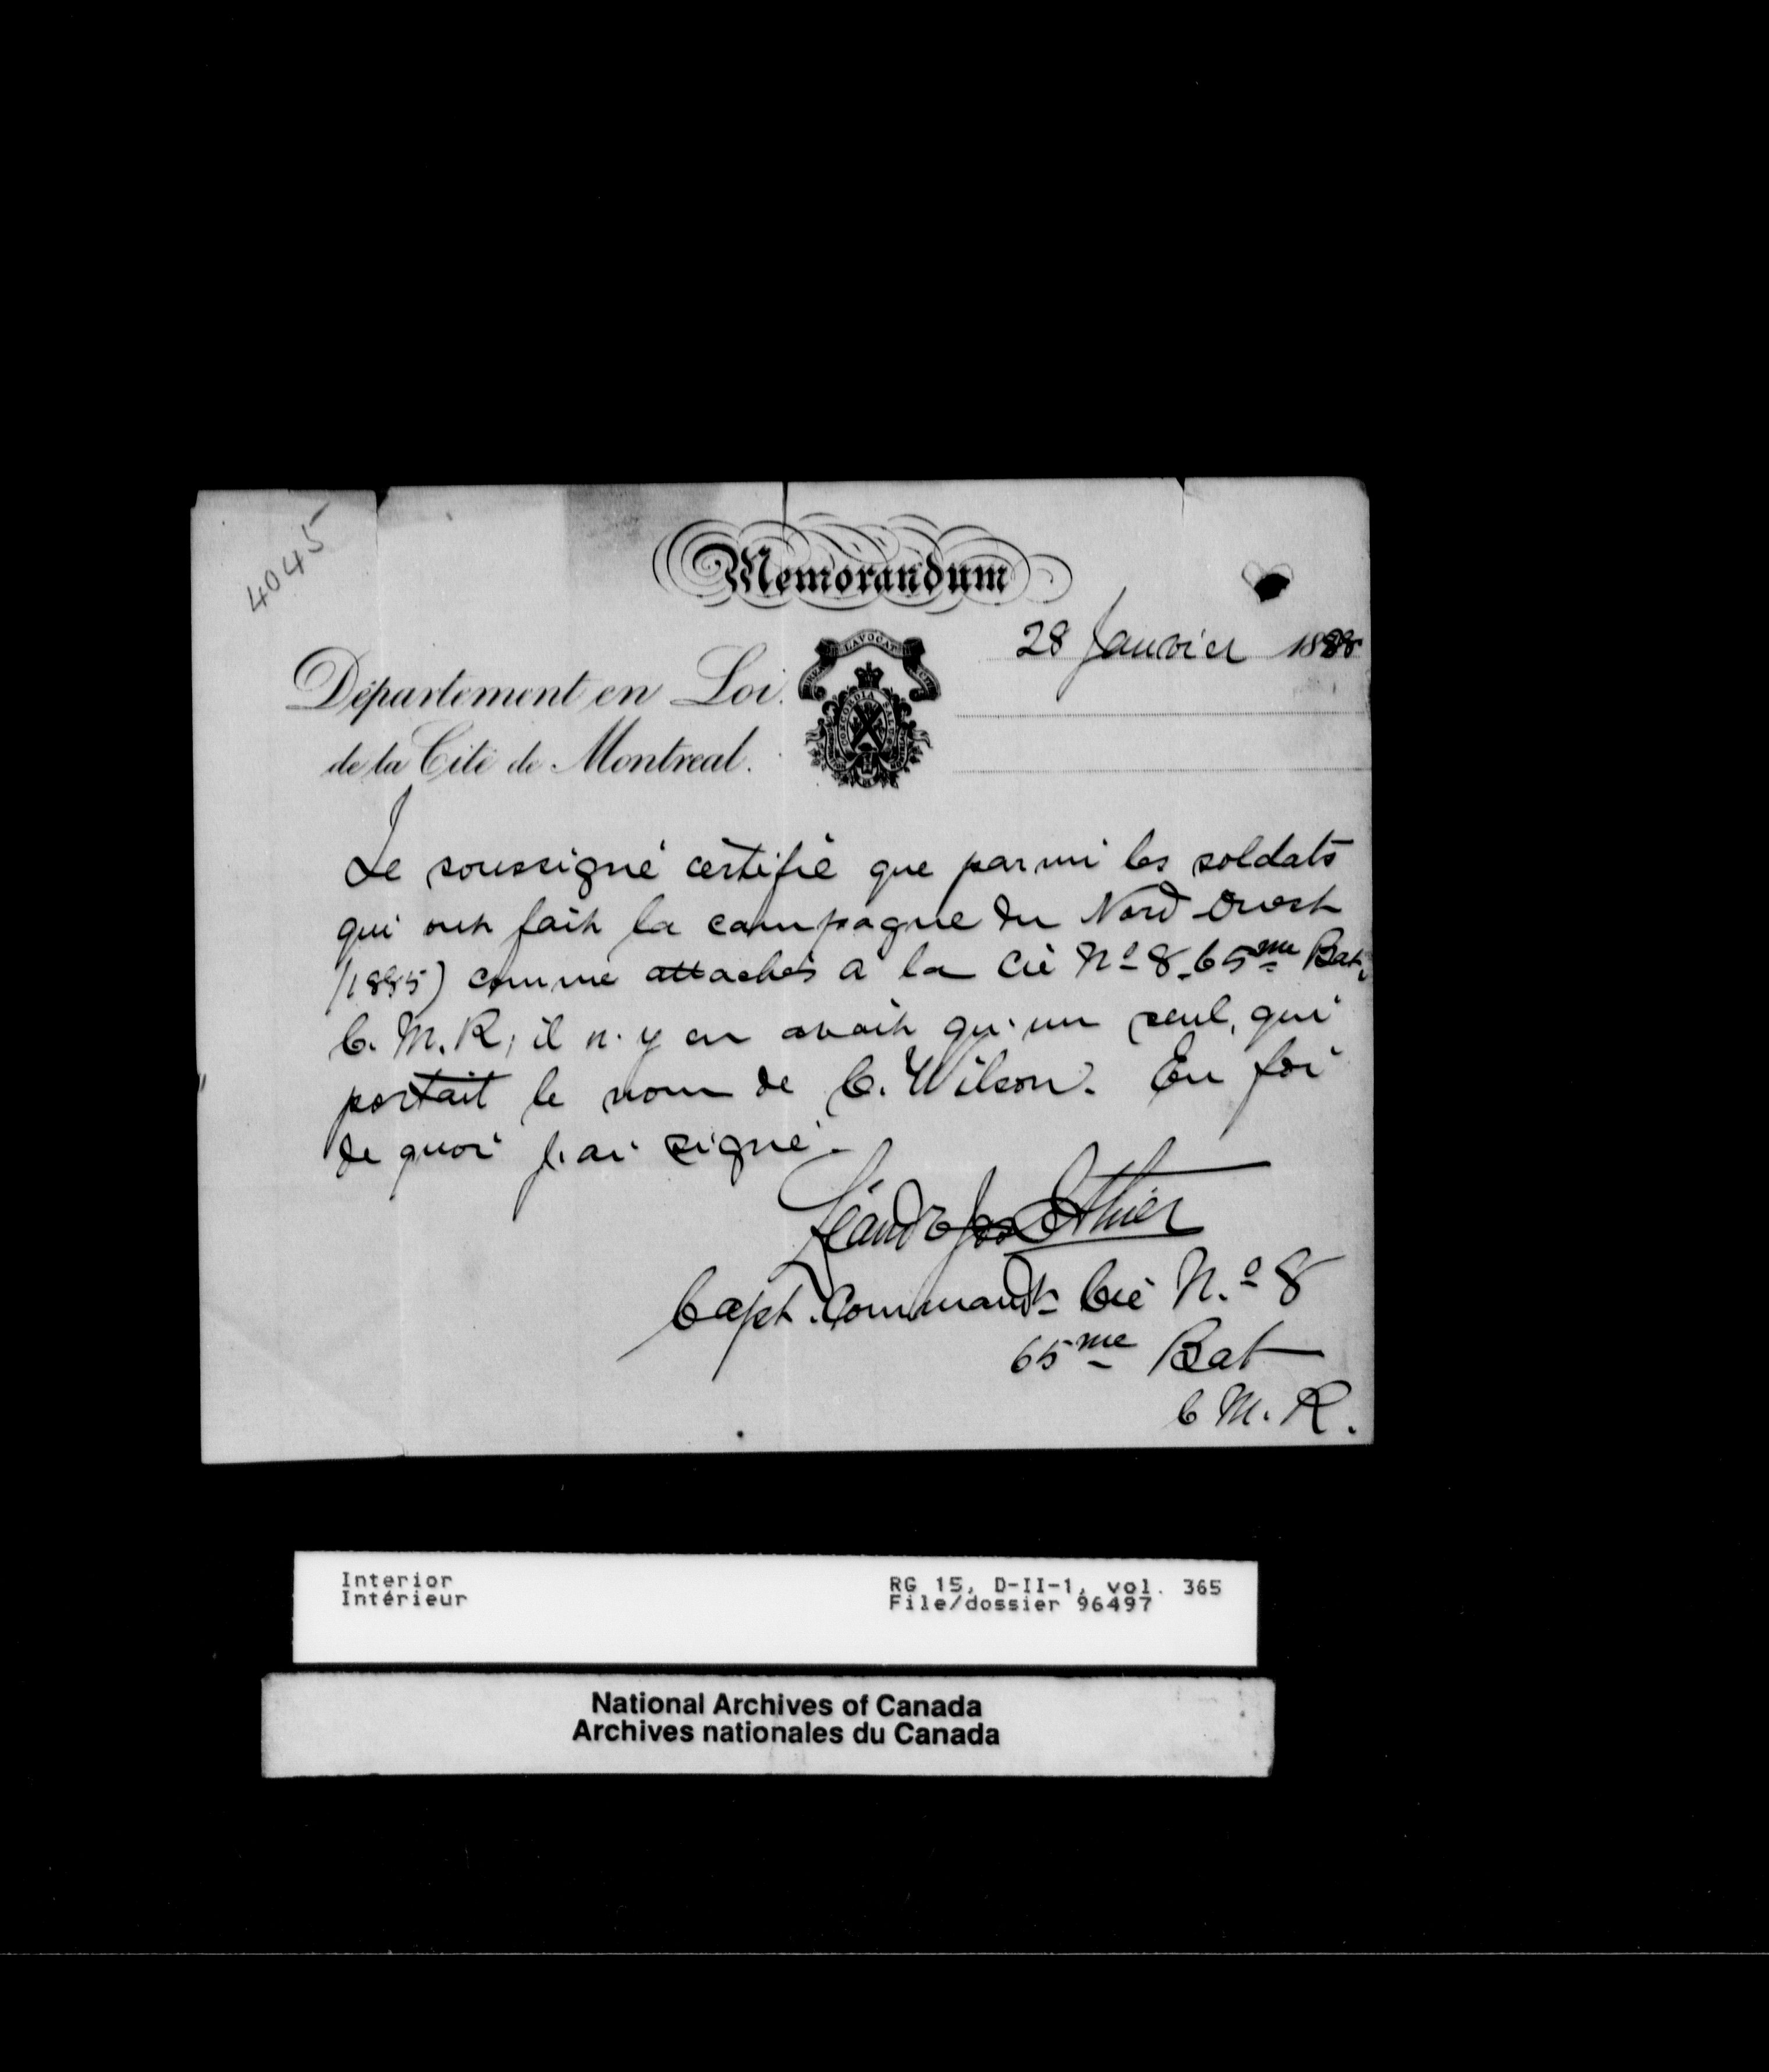 4045
Memorandum
28 Janvier 1888
Département en Loi.
de la Cité de Montreal.
CONCORDIA SALUS
Je soussigné certifie que parmi les soldats
qui ont fait la campagne du Nord-Ouest
(1885) comme attachés a la Cie No 8. 65me Bat.
C. M. R; il n'y en avait qu'un seul, qui
portait le nom de C. Wilson. En foi
de quoi j'ai signé.
Léandre Jos Ethier
Capt. Commandt Cie N.o 8
65me Bat
C M. R.
Interior
Intérieur
RG 15, D-II-1, vol. 365
File/dossier 96497
National Archives of Canada
Archives nationales du Canada